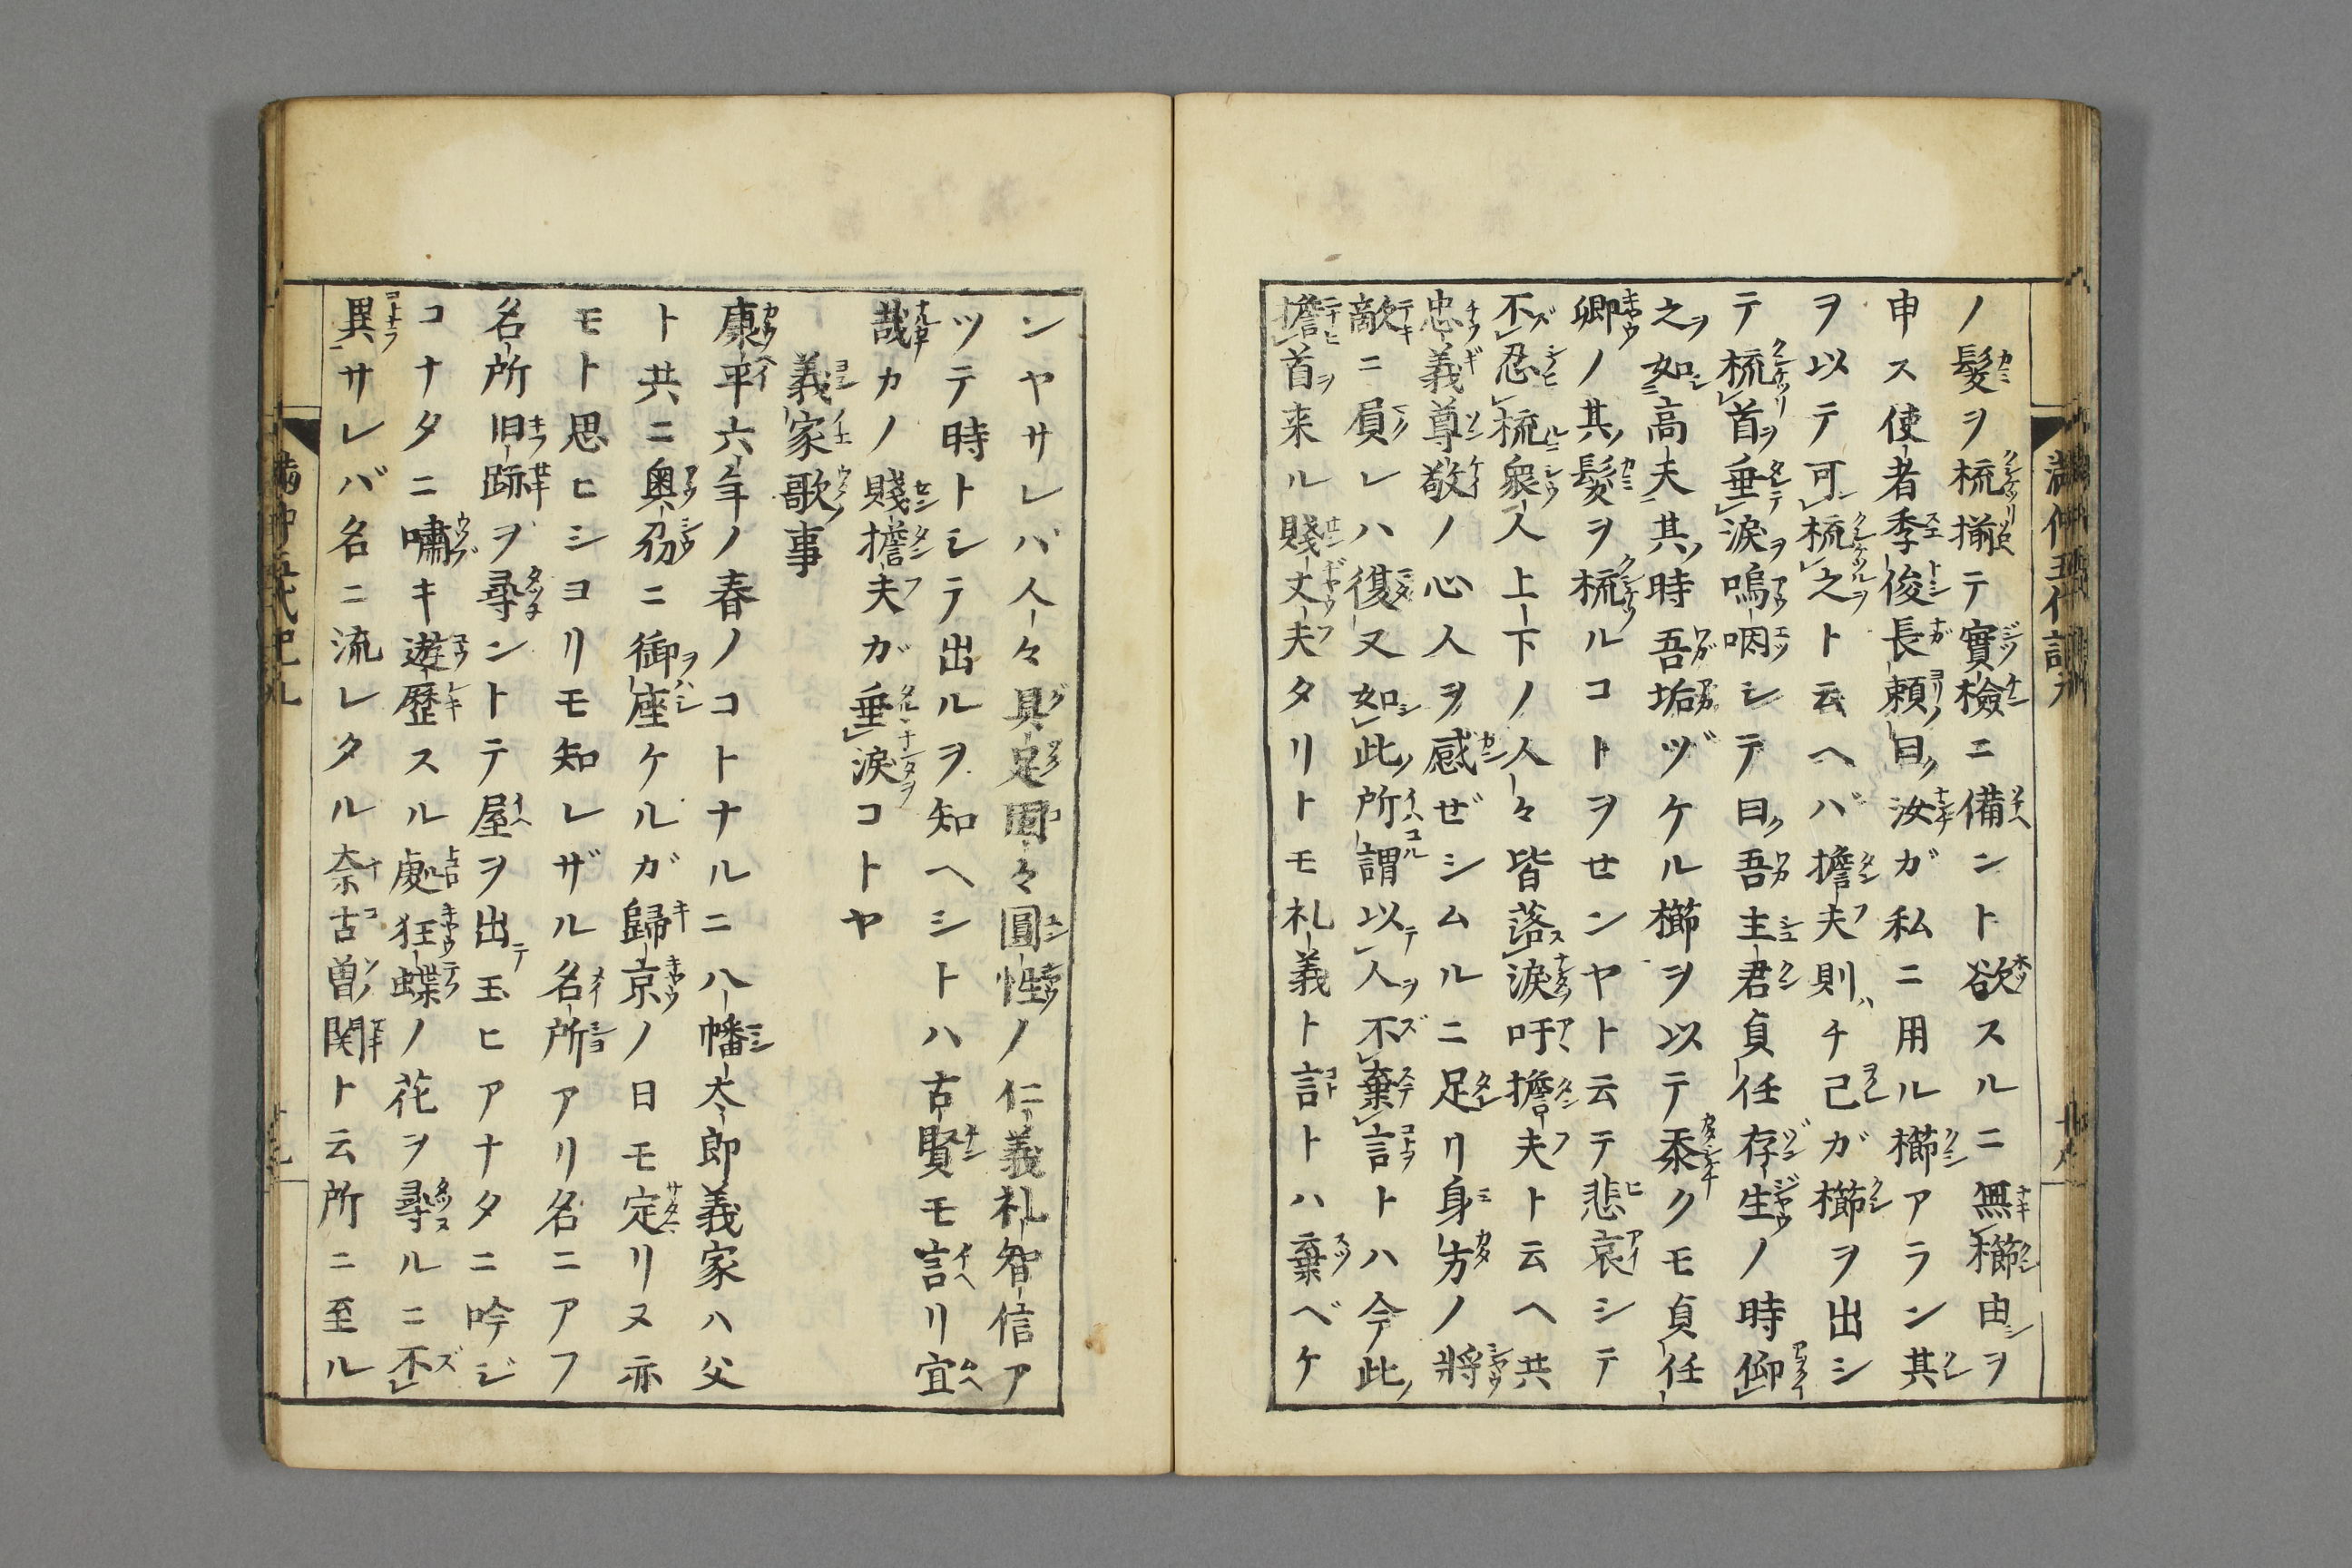 ノ髮ヲ梳搦テ實檢ニ備ント欲スルニ無櫛由ヲ
申ス使者季俊長頼曰汝ガ私ニ用ル櫛アラン其
ヲ以テ可梳之ト云ヘバ擔夫則チ己ガ櫛ヲ出シ
テ梳首垂涙嗚咽シテ曰吾主君貞任存生ノ時仰
之如高夫其時吾垢ヅケル櫛ヲ以テ忝クモ貞任
卿ノ其髮ヲ梳ルコトヲせンヤト云テ悲哀シテ
不忍梳衆人上下ノ人々皆落涙吁擔夫ト云ヘ共
忠義尊敬ノ心人ヲ感ぜシムルニ足リ身方ノ將
敵ニ員レハ復又如此所謂以人不棄言トハ今此
擔首来ル賤丈夫タリトモ礼義ト言トハ棄ベケ
ンヤサレバ人々具足圓々圓性ノ仁義礼智信ア
ツテ時トシテ出ルヲ知ヘシトハ古賢モ言リ宜
哉カノ賤擔夫ガ垂涙コトヤ
義家歌事
康平六年ノ春ノコトナルニ八幡太郎義家ハ父
ト共ニ奥刕ニ御座ケルガ歸京ノ日モ定リヌ亦
モト思ヒシヨリモ知レザル名所アリ名ニアフ
名所旧跡ヲ尋ントテ屋ヲ出玉ヒアナタニ吟ジ
コナタニ嘯キ遊歷スル處狂蝶ノ花ヲ尋ルニ不
異サレバ名ニ流レタル奈古曽関ト云所ニ至ル